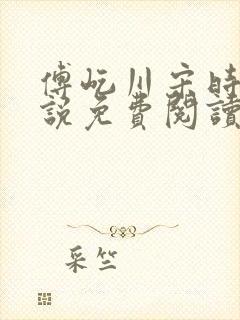 傅屹川宋時
說免費閱讀
采竺